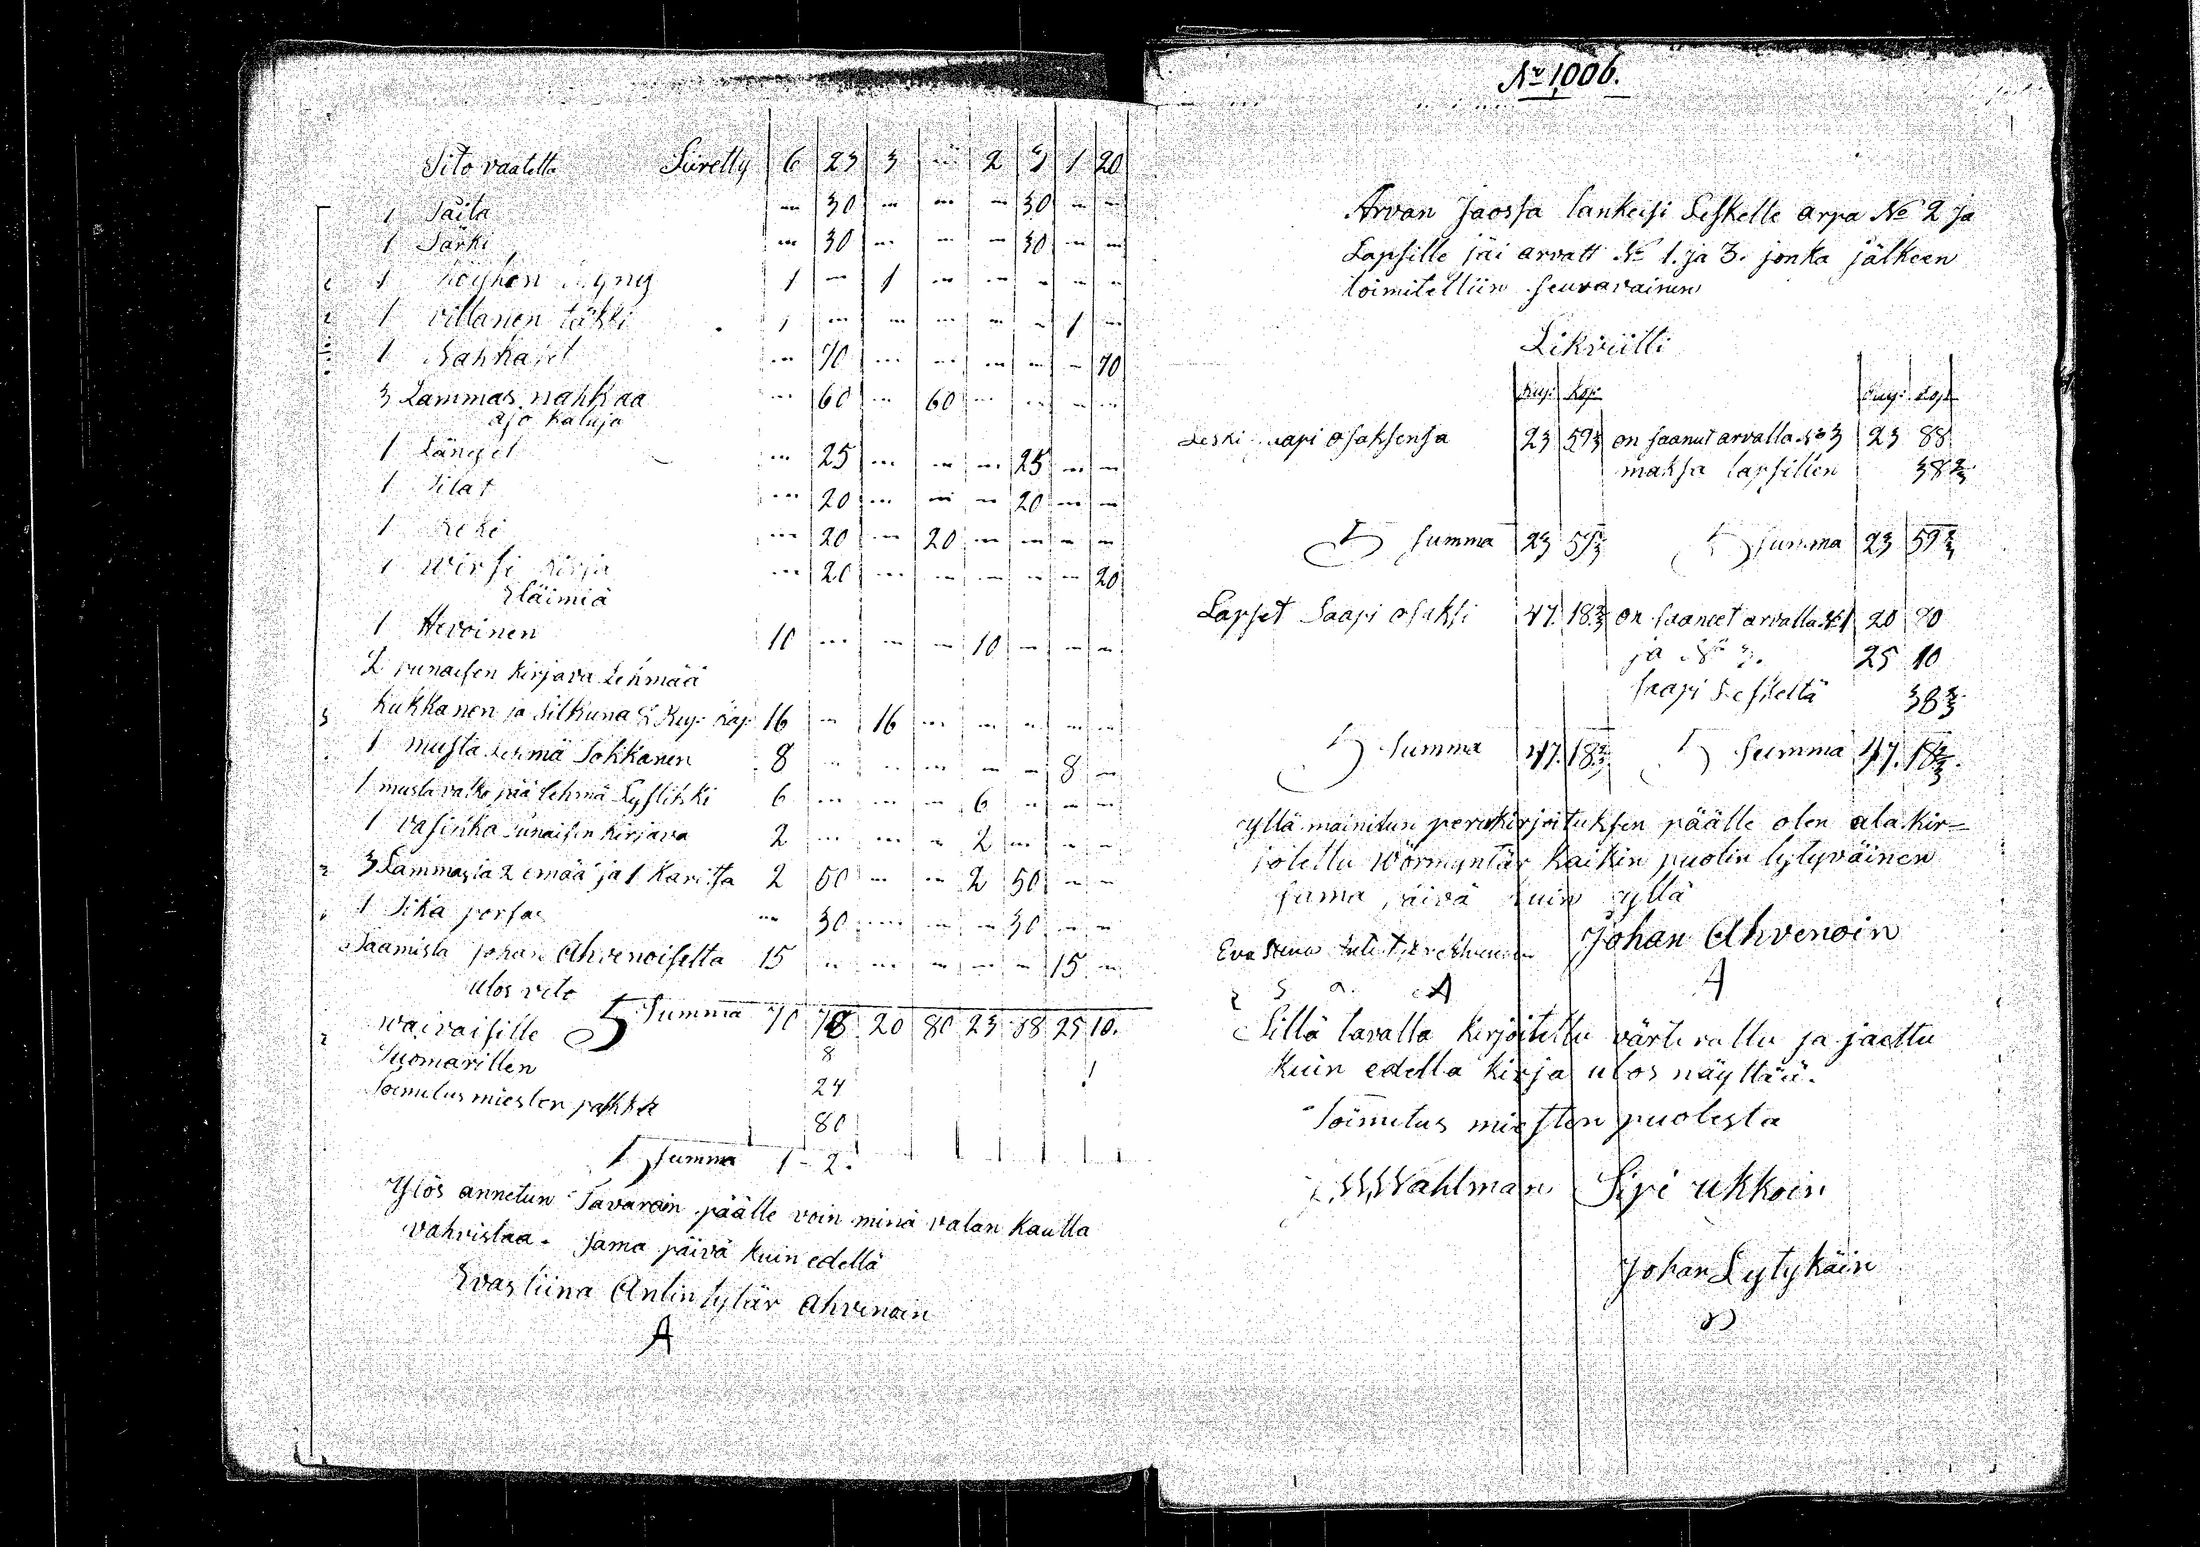 Sito vaatetta Siiretty 6 23 3 — 2 3 1 20
1 Säitä — 30 — — — 30 — —
1 Särki — 30 — — — 30 — —
1 1 — 1 — — — — —
1 villanen täkki 1 — — — — — 1 —
1 Nahkaset — 70 — — — — — 70
3 Lammas nahkaa — 60 — 60 — — — —
ajo kaluja
1 Länget — 25 — — — 25 — —
1 Silat — 20 — — — 20 — —
1 Reki — 20 — 20 — — — —
1 Wirsi kirja — 20 — — — — — 20
Eläimiä
1 Hevoinen 10 — — — 10 — — —
2 punaisen kirjava Lehmää
Kukkanen ja Silkuna 16 — 16 — — — — —
1 musta Lehmä Sokkanen 8 — — — — — 8 —
1 musta valko pää lehmä 6 — — — 6 — — —
1 vasikka punaisen kirjava 2 — — — 2 — — —
3 Lammasia 2 emää ja 1 karitsa 2 50 — — 2 50 — —
1 Sika porsas — 30 — — — 30 — —
Saamista johan Ahvenoiselta 15 — — — — — 15 —
ulos veto
Summa 70 78 20 80 23 88 25 10.
waivaisille 8
Tuomarillen 24
Toimitus miesten palkka 80
Summa 1 - 2.
Ylös annetun Tavaroin päälle voin minä valan kautta
vahvistaa. sama päivä kuin edellä
Evastiina Antin tytär Ahvenoin
A
No 1006.
Arvan Jaossa lankeisi Leskelle arpa No 2 ja
Lapsille jäi arvatt No 1. ja 3. jonka jälkeen
toimitettiin seuraavainen
Likviitti
Rup: Kop: Rup: Kop:
Leski saapi osaksensa 23 59 2/3 on saanut arvalla No 3 23 88
maksa lapsillen 38 2/3
Summa 23 59 2/3 Summa 23 59 2/3
Lapset Saapi osaksi 47. 18 2/3 on saaneet arvalla No 1 20 80
ja No 3. 25 10
saapi Leskeltä 38 2/3
Summa 47. 18 2/3 Summa 47. 18 2/3.
yllä mainitun perukirjoituksen päälle olen ala kir=
joitettu Wörmyntär kaikin puolin tytyväinen
sama päivä kuin yllä
Johan Ahvenoin
A
Eva Stina
A
Sillä tavalla kirjoitettu värteerattu ja jaettu
kuin edellä kirja ulos näyttää.
Toimitus miesten puolesta
Wahlman Sipi ukkoin
Johan Lytykäin